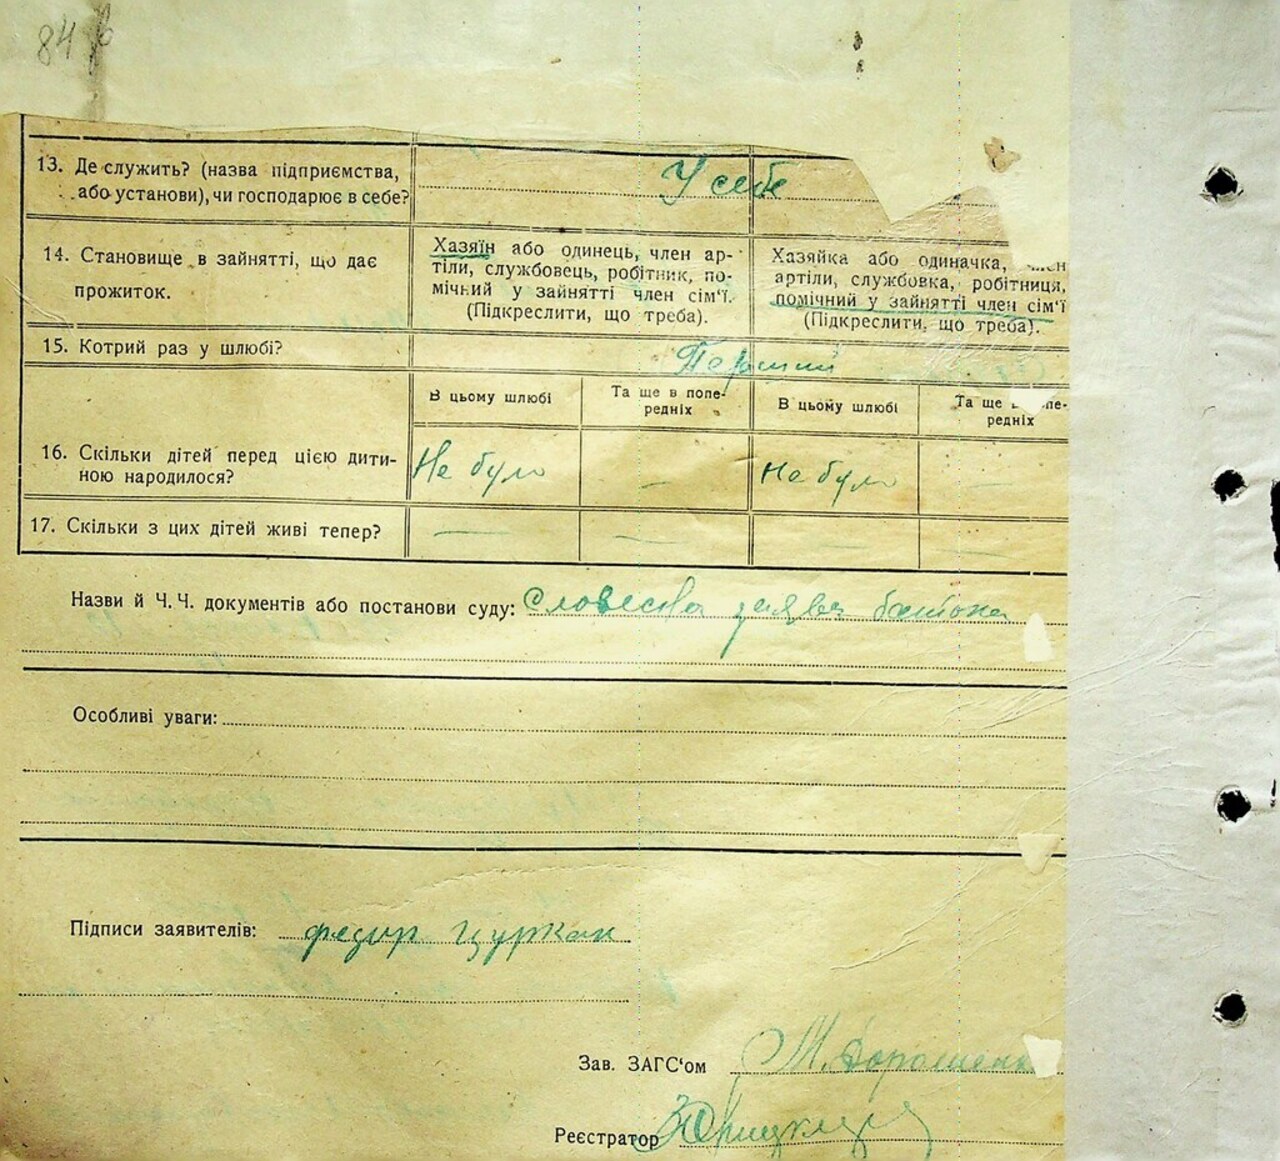 84
13. Де служить? (назва підприємства, У себе
або установи), чи господарює в себе?
14. Становище в зайнятті, що дає
прожиток.
Хазяїн або одинець, член ар-
тіли, службовець, робітник, по-
мічний у зайнятті член сім'ї.
(Підкреслити, що треба).
Хазяйка або одиначка, член
артіли, службовка, робітниця,
помічний у зайнятті член сім'ї
(Підкреслити, що треба).
15. Котрий раз у шлюбі? Перший
В цьому шлюбі
Та ще в попе-
редніх
В цьому шлюбі
Та ще в попе-
редніх
16. Скільки дітей перед цією дити-
ною народилося?
Не було — Не було —
17. Скільки з цих дітей живі тепер? — — — —
Назви й Ч. Ч. документів або постанови суду: Словесна заява батька
Особливі уваги:
Підписи заявителів: федір цуркан
Зав. ЗАГС'ом М. Дорошенко
Реєстратор